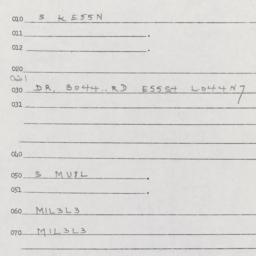 010 S K E55N
011 .
012 .
020
030 DR, 3044..RD E55S4 L044N7
031
040
050 S MU7L
051 .
060 MIL3L3
070 MIL3L3